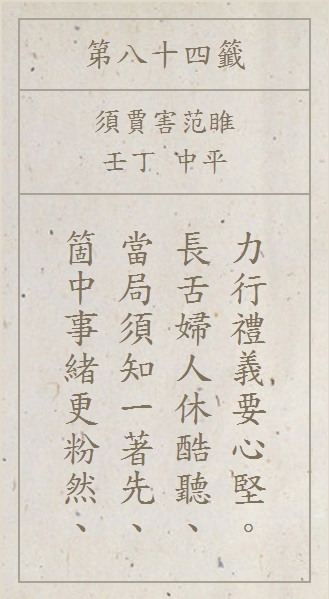 第八十四籤
須賈害范睢
壬丁 中平
箇中事緒更粉然、
當局須知一著先、
長舌婦人休酷聽、
力行禮義要心堅。